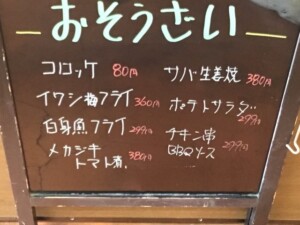 おそうざい
コロッケ 80円
イワシ梅フライ 360円
白身魚フライ 299円
メカジキ
トマト煮 380円
サバ生姜焼 380円
ポテトサラダ
299円
チキン串
BBQソース 299円